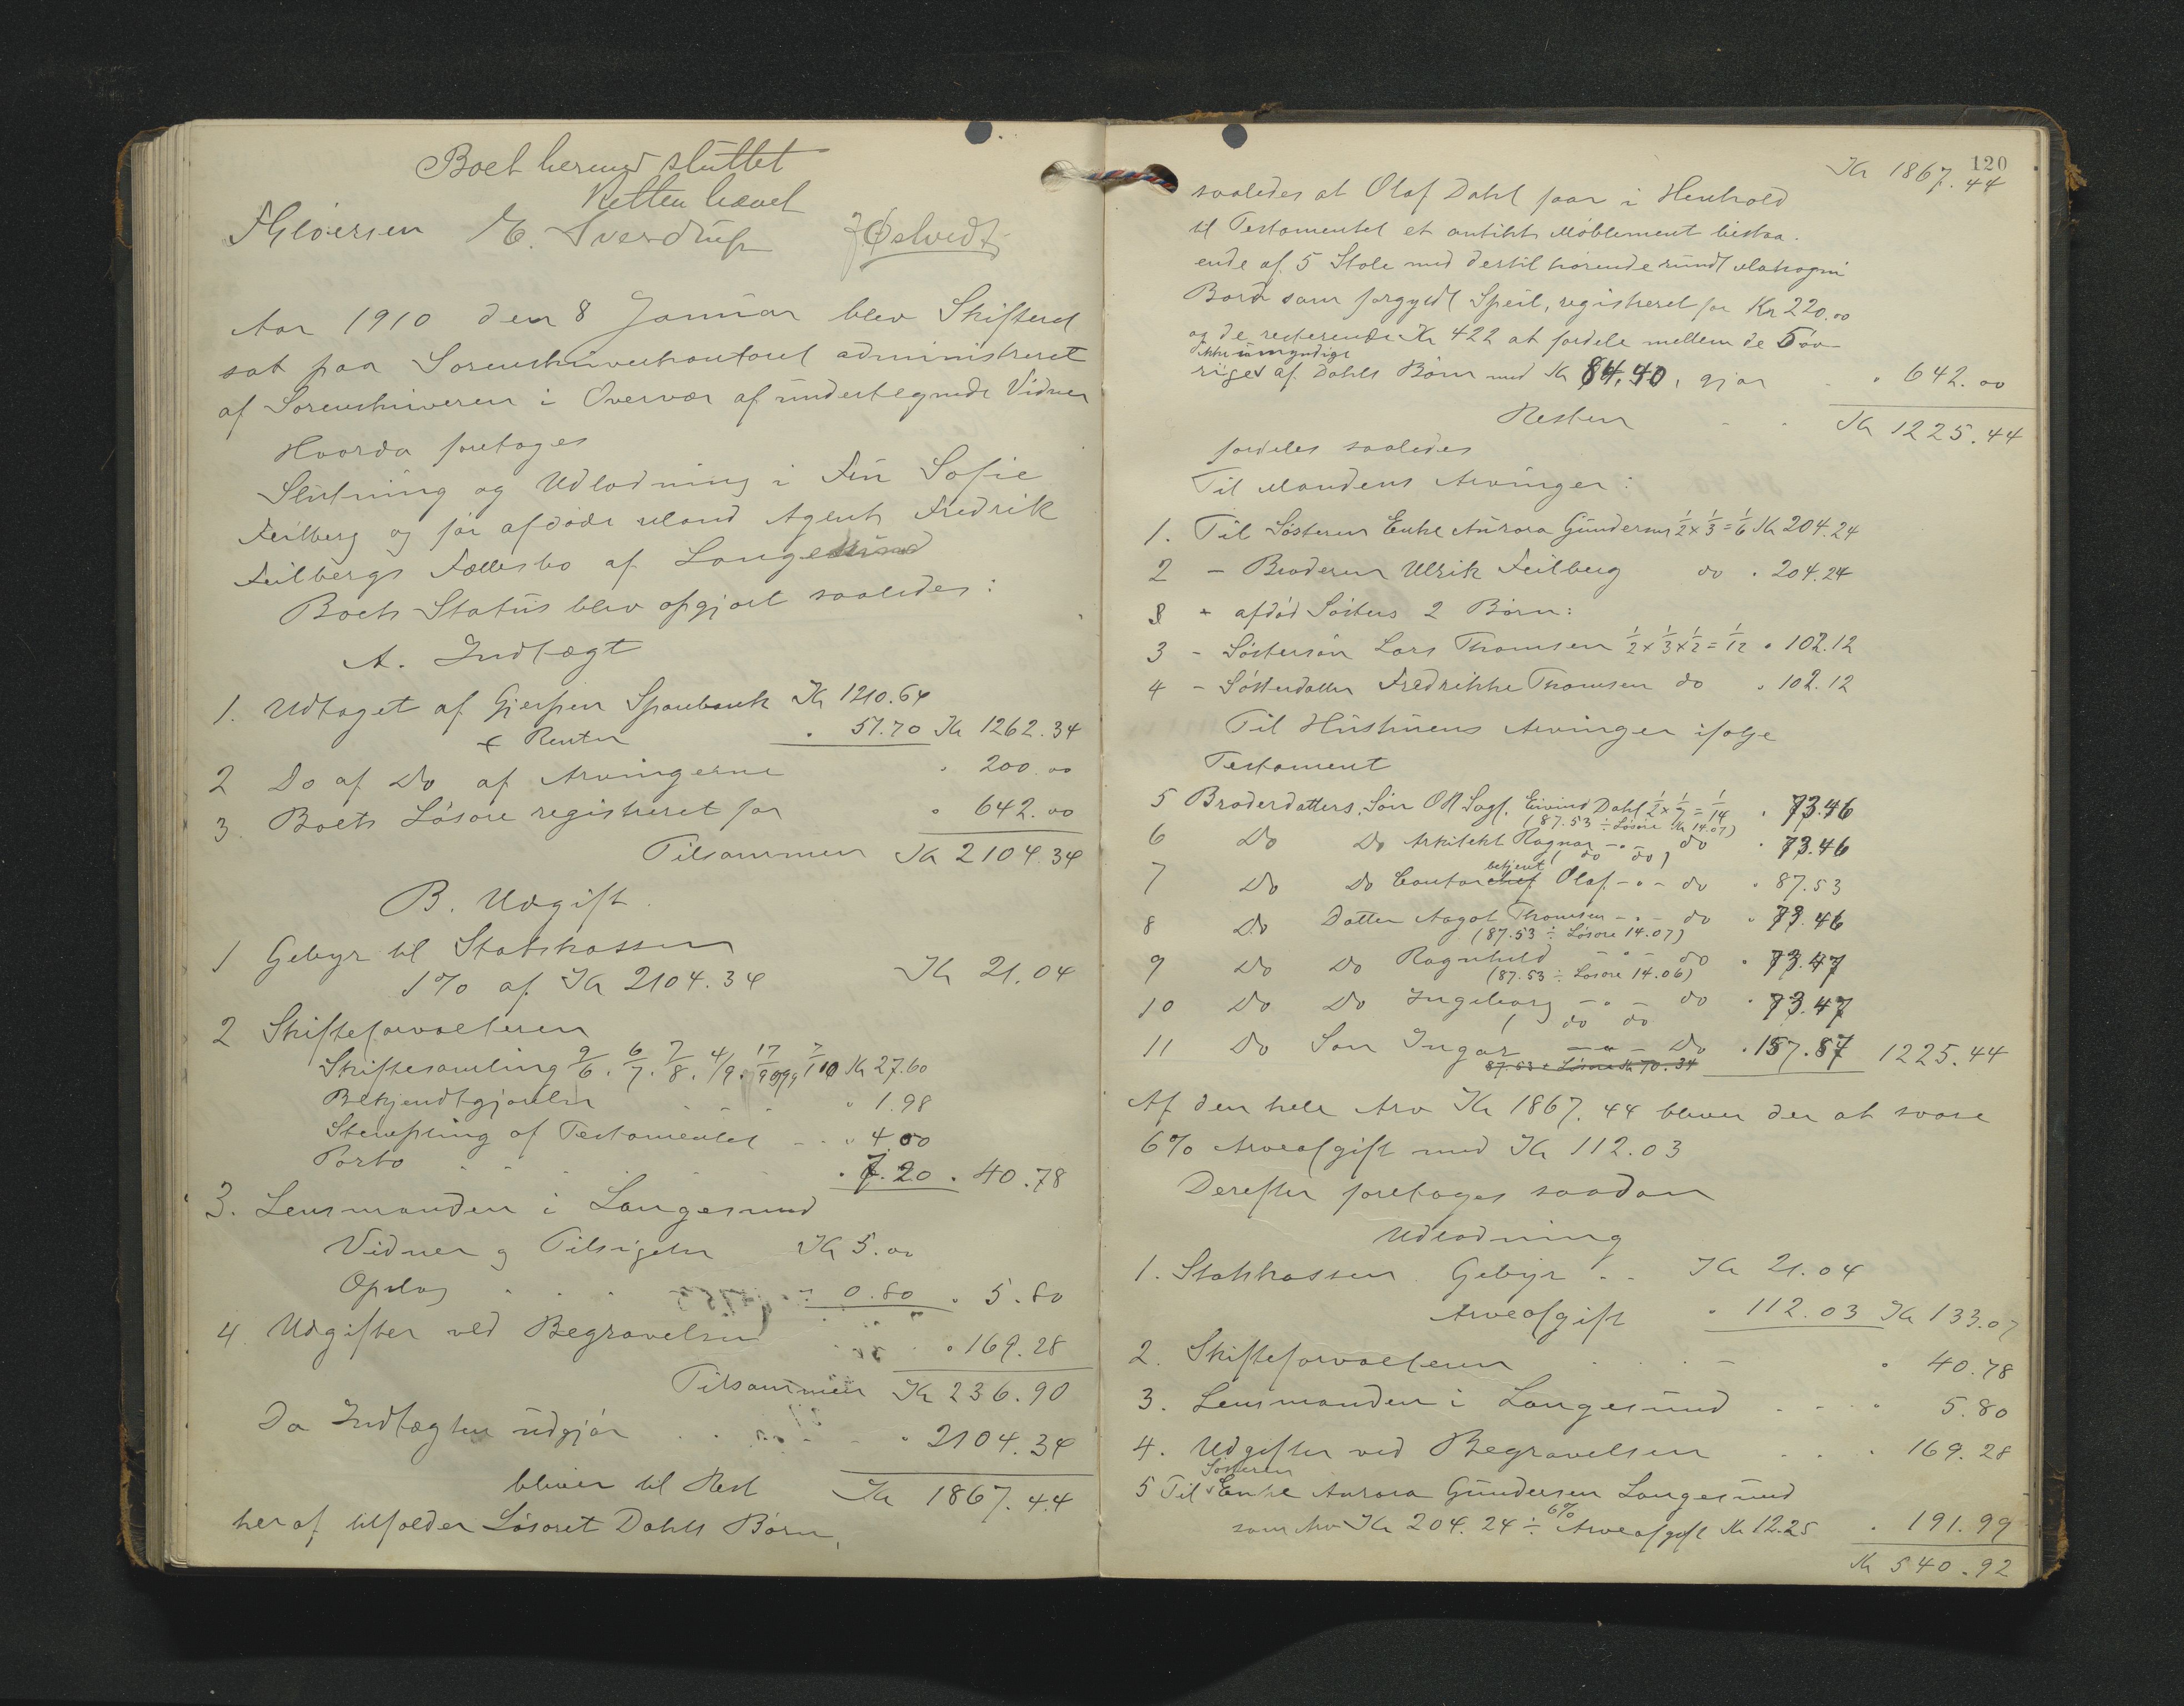 Boet hermed sluttet
Retten hævet
FGløersen E. Sverdrup JØstvedt
Aar 1910 den 8 Januar blev Skifteret
sat paa Sorenskriverkontoret administreret
af Sorenskriveren i Overvær af undertegnede Vidner
Hvorda foretages
Slutning og Udlodning i Fru Sofie
Feilberg og før afdøde Mand Agent Fredrik
Feilbergs Fællesbo af Langesund
Boets Status blev opgjort saaledes:
A. Indtægt
1. Udtaget af Gjerpen Sparebank Kr 1210.64
+ Renter " 51.70 Kr 1262.34
2 Do af Do af Arvingerne " 200.00
3. Boets Løsøre registreret for " 642.00
Tilsammen Kr 2104.34
B. Udgift.
1 Gebyr til Statskassen
1% af Kr 2104.34 Kr 21.04
2 Skifteforvalteren
Skiftesamling 9/6. 6/7. 7/8. 4/9. 17/9 7/10 Kr 27.60
Bekjendtgjørelse - - - " 1.98
Stempling af Testamentet - - " 4.00
Porto - - - " 7.20 " 40.78
3. Lensmanden i Langesund
Vidner og Tilsigelse Kr 5.00
Opslag . . . " 0.80 " 5.80
4 Udgifter ved Begravelsen " 169.28
Tilsammen Kr 236.90
Da Indtægten udgjør . . . " 2104.34
bliver til Rest Kr 1867.44
heraf tilfalder Løsøret Dahls Børn,
120
Kr 1867.44
saaledes at Olaf Dahl faar i Henhold
til Testamentet et antikt Møblement bestaa-
ende af 5 Stole med dertil hørende rundt Mahogni
Bord samt forgyldt Speil, registreret for Kr 220.00
og de resterende Kr 422 at fordele mellem de 5 øv-
ikke umyndige
rige af Dahls Børn med Kr 84.40, gjør " 642.00
Resten - - Kr 1225.44
fordeles saaledes
Til Mandens Arvinger:
1. Til Søsteren Enke Aurora Gundersen 1/2 x 1/3 = 1/6 Kr 204.24
2 - Broderen Ulrik Feilberg do " 204.24
3 - afdød Søsters 2 Børn:
3 - Søstersøn Lars Thomsen 1/2 x 1/3 x 1/2 = 1/12 " 102.12
4 - Søsterdatter Fredrikke Thomsen do " 102.12
Til Hustruens Arvinger ifølge
Testament
5 Broderdatters Søn O.R.Sagf. Eivind Dahl 1/2 x 1/7 = 1/14 " 73.46
(87.53 ÷ Løsøre Kr 14.07)
6 Do Do Arkitekt Ragnar -"- do " 73.46
( do do )
betjent
7 Do Do Contorchef Olaf -"- do " 87.53
8 Do Datter Aagot Thomsen -"- do " 73.46
(87.53 ÷ Løsøre 14.07)
9 Do Do Ragnhild -"- do " 73.47
(87.53 ÷ Løsøre 14.06)
10 Do Do Ingeborg -"- do " 73.47
( do do
11 Do Søn Ingar -"- Do " 157.87 1225.44
87.53 + Løsøre Kr 70.34
Af den hele Arv Kr 1867.44 bliver der at svare
6% Arveafgift med Kr 112.03
Derefter foretages saadan
Udlodning
1. Statskassen. Gebyr . . Kr 21.04
Arveafgift " 112.03 Kr 133.07
2. Skifteforvalteren . . . . " 40.78
3. Lensmanden i Langesund . . . " 5.80
4. Udgifter ved Begravelsen . . " 169.28
Søsteren
5 Til Enke Aurora Gundersen Langesund
som Arv Kr 204.24 ÷ 6% Arveafgift Kr 12.25 " 191.99
Kr 540.92